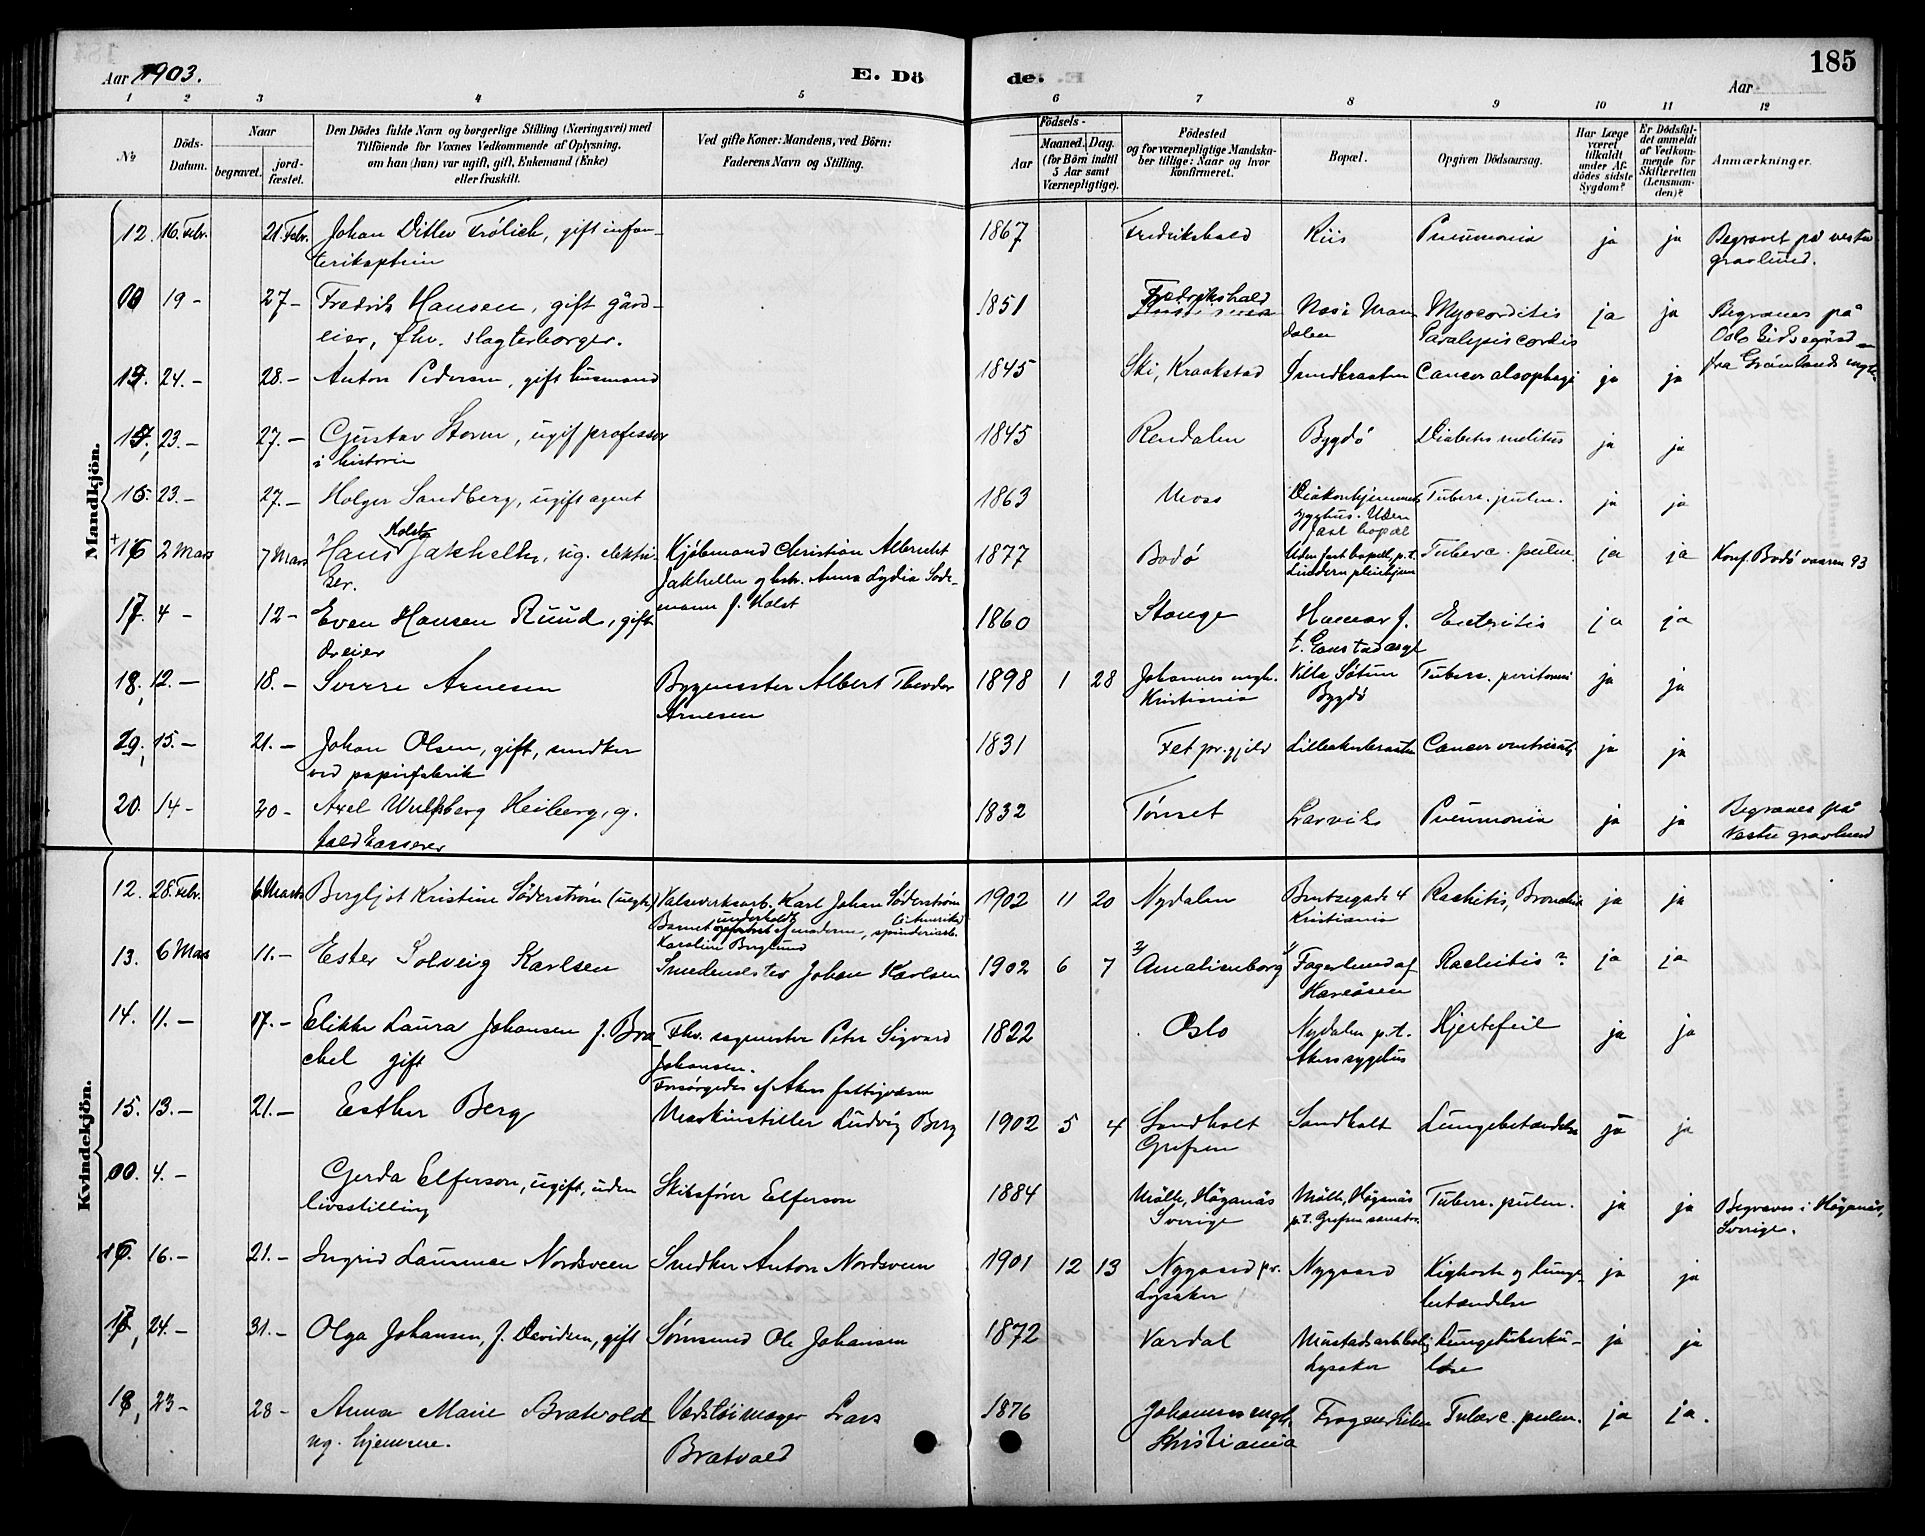 Aar 1903.
E. Dö
de.
185
Aar
1 2 3 4 5 6 7 8 9 10 11 12
No
Döds-Datum.
Naar
begravet.
jord-fæstet.
Den Dödes fulde Navn og borgerlige Stilling (Næringsvei) med
Tilföiende for Voxnes Vedkommende af Oplysning,
om han (hun) var ugift, gift, Enkemand (Enke)
eller fraskilt.
Ved gifte Koner: Mandens, ved Börn:
Faderens Navn og Stilling.
Födsels-
Aar
Maaned.
Dag.
(for Börn indtil
5 Aar samt
Værnepligtige).
Födested
og for værnepligtige Mandska-
ber tillige: Naar og hvor
konfirmeret.
Bopæl.
Opgiven Dödsaarsag.
Har Læge
været
tilkaldt
under Af-
dödes sidste
Sygdom?
Er Dödsfal-
det anmeldt
af Vedkom-
mende for
Skifteretten
(Lensman-
den)?
Anmærkninger.
Mandkjön.
12. 16. Febr. 21. Febr. Johan Ditlev Frölich, gift infan- 1867 Fredrikshald Riis Pneumonia ja ja Begravet på vestre
terikaptein gravlund.
00 19 - 27 - Fredrik Hansen, gift gård- 1851 Fredrikshald Myocarditis ja ja Begraves på
eier, fhv. slagterborger. dalen Paralysis cordis Oslo
fra Grønlands
24. - 28. - Anton Pedersen, gift husmand 1845 Ski, Kraakstad Cancer ja ja
23. - 27. - Gustav Storm, ugif professor 1845 Rendalen Bygdö Diabetes melitus ja ja
i historie
23. - 27. - Holger Sandberg, ugift agent 1863 Moss Diakonhjemmets Tuberc. pulm. ja ja
sygehus. Uden
fast bopæl
+16 2 Mars 7 Mars Hans Holst Jakhelln, ug. elektri- Kjöbmand Christian Albrecht 1877 Bodö Uden fast bopæl, p.t. Tuberc. pulm. ja ja Konf. Bodö vaaren 93
ker. Jakhelln og hstr. Anna Lydia Sode-
mann f. Holst
17. 4 - 12 - Even Hansen Ruud, gift 1860 Stange Hamar f. Enteritis ja ja
dreier t. Gaustad asyl
18. 12. - 18. - Sverre Arnesen Bygmester Albert Theodor 1898 1 28 Johannes mgh. Villa Tuberc. peritonei ja ja
Arnesen Kristiania Bygdö
15. - 21. - Johan Olsen, gift, snedker 1831 Fet pr.gjeld Cancer ventriculi ja ja
ved papirfabrik
20. 14 - 20 - Axel Wulfsberg Heiberg, g. 1832 Tönset Larvik Pneumonia ja ja Begraves på
toldkasserer Vestre gravlund
Kvindekjön.
12. 28. Febr. 6 Mars Bergljot Kristine Söderström (uegte) Valseverksarb. Karl Johan Söderström 1902 11 20 Nydalen Bentsegade 4 Rachitis, ja ja
Barnet underholdt af moderen, spinderiarb. Kristiania
Karolin Berglund
13. 6 Mars 11. - Ester Solveig Karlsen Smedmester Johan Karlsen 1902 6 7 Amalienborg Fagerlund af Rachitis? ja ja
14. 11. - 17. - Elikke Laura Johansen f. Bra- Fhv. sagmester Peter Sigvard 1822 Oslo Nydalen p.t. Hjertefeil ja ja
chel gift Johansen. Akers sygehus
Forsörgedes af Akers fattigvæsen
15. 13. - 21. - Esther Berg Maskinstiller Ludvig Berg 1902 5 4 Sandholt Sandholt Lungebetændelse ja ja
Grefsen
00. 4. - Gerda Elferson, ugift, uden Skibsförer Elferson 1884 Mölle, Höganäs Mölle, Höganäs Tuberc. pulm. ja ja Begraves i Höganäs,
livsstilling Sverige p.t. Grefsen sanator. Sverige.
16. 16. - 21. - Ingrid Laurense Nordsveen Snedker Anton Nordsveen 1901 12 13 Nygaard pr. Nygaard Kighoste og Lunge- ja ja
Lysaker betændelse
17. 24. - 31. - Olga Johansen, f. Davidsen, gift Sömsmed Ole Johansen 1872 Vardal Mustads arb.bolig Lungetuberku- ja ja
Lysaker lose
18, 23 - 28 - Anna Marie Bratvold Værktöimager Lars 1876 Johannes mgh. Frognerkilen Tuberc. pulm. ja ja.
ug. hjemmev. Bratvold Kristiania